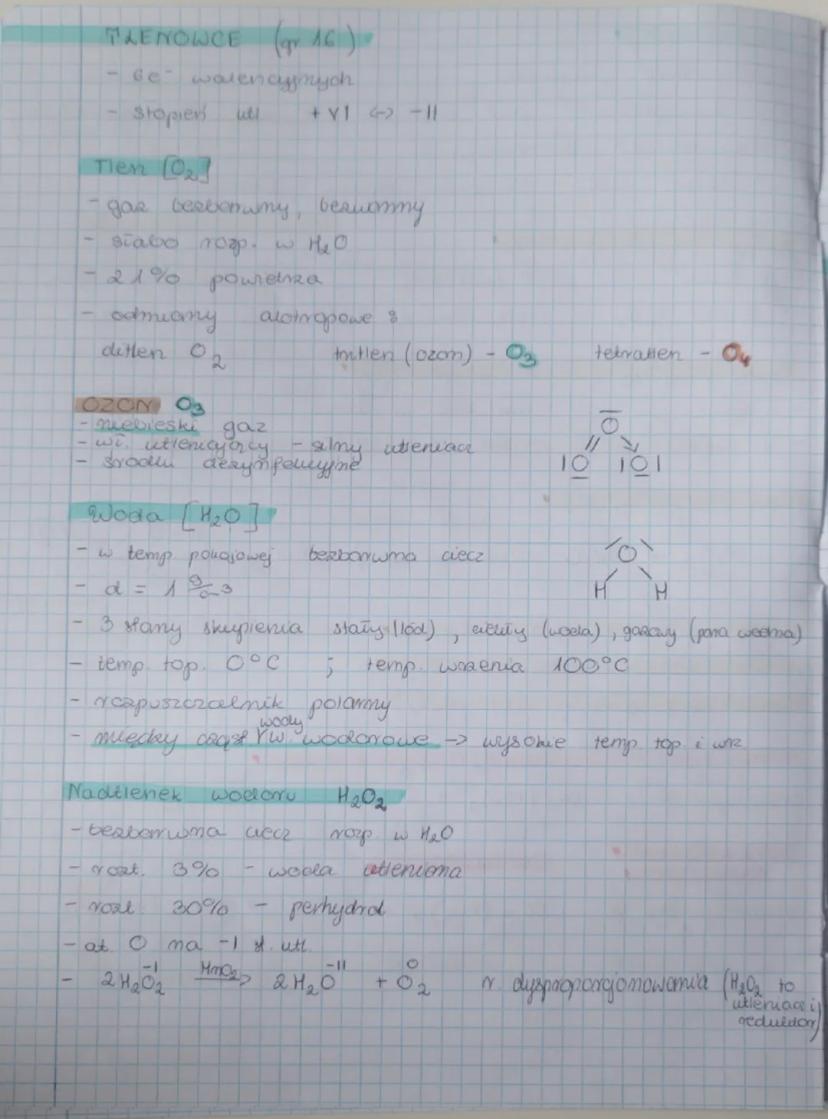 TLENOWCE (gr 16)
- 6e⁻ walencyjnych
- stopień utl +VI <-> -II
Tlen [O₂]
- gaz bezbarwny, bezwonny
- słabo rozp. w H₂O
- 21% powietrza
- odmiany alotropowe:
ditlen O₂ tritlen (ozon) - O₃ tetratlen - O₄
OZON O₃
- niebieski gaz
- wł. utleniający - silny utleniacz
- środki dezynfekcyjne
O
IO IOI
Woda [H₂O]
- w temp pokojowej bezbarwna ciecz
O
- d = 1 g/cm³
H H
- 3 stany skupienia stały (lód), ciekły (woda), gazowy (para wodna)
- temp. top. 0°C ; temp. wrzenia 100°C
- rozpuszczalnik polarny
- między cząst wody w. wodorowe -> wysokie temp top i wrz
Nadtlenek wodoru H₂O₂
- bezbarwna ciecz rozp w H₂O
- rozt. 3% - woda utleniona
- rozt 30% - perhydrol
- at O ma -I st. utl.
- 2H₂O₂⁻ᴵ MnO₂-> 2H₂O⁻ᴵᴵ + O₂⁰ r dysproporcjonowania (H₂O₂ to
utleniacz i
reduktor)